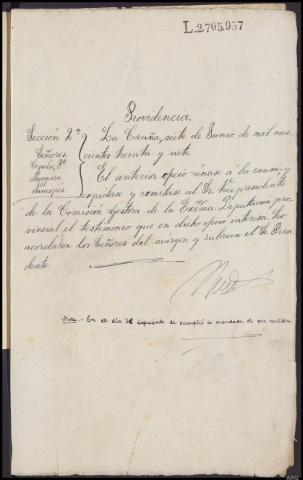 L.2.705.937
Providencia.
Sección 2ª La Coruña, siete de Junio de mil nove
Señores cientos treinta y siete.
El anterior oficio únase a la causa y
expídase y remítase al Sr. Vice presidente
de la Comisión Gestora de la Excma. Diputación pro-
vincial el testimonio que en dicho oficio interesa. Lo
acordaron los Señores del margen y rubrica el Sr. Presi
dente.
Nota.- En el día siguiente se cumplió lo mandado, de que certifico.